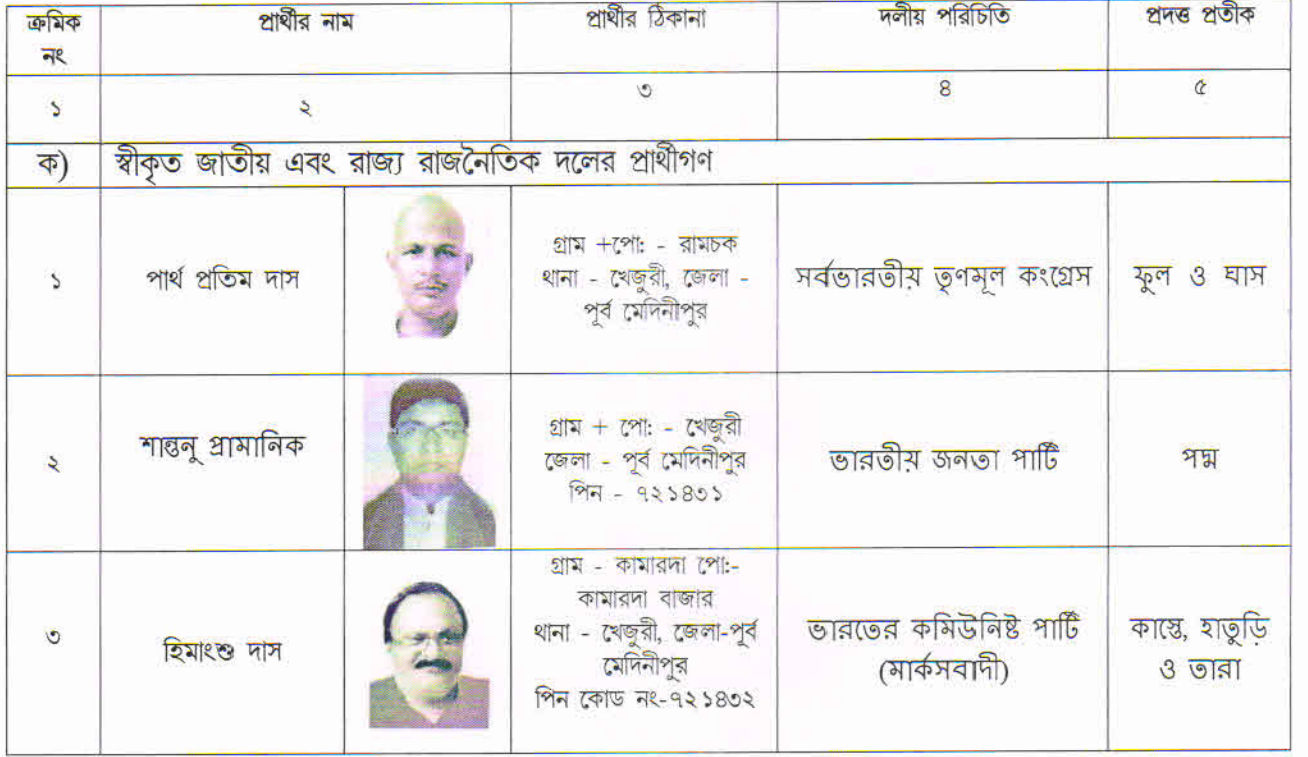 ক্রমিক নং
প্রার্থীর নাম
প্রার্থীর ঠিকানা
দলীয় পরিচিতি
প্রদত্ত প্রতীক
১
২
৩
৪
৫
ক)
স্বীকৃত জাতীয় এবং রাজ্য রাজনৈতিক দলের প্রার্থীগণ
১
পার্থ প্রতিম দাস
গ্রাম +পো: - রামচক
থানা - খেজুরী, জেলা -
পূর্ব মেদিনীপুর
সর্বভারতীয় তৃণমূল কংগ্রেস
ফুল ও ঘাস
২
শান্তনু প্রামানিক
গ্রাম + পো: - খেজুরী
জেলা - পূর্ব মেদিনীপুর
পিন - ৭২১৪৩১
ভারতীয় জনতা পার্টি
পদ্ম
৩
হিমাংশু দাস
গ্রাম - কামারদা পো:-
কামারদা বাজার
থানা - খেজুরী, জেলা-পূর্ব
মেদিনীপুর
পিন কোড নং-৭২১৪৩২
ভারতের কমিউনিষ্ট পার্টি
(মার্কসবাদী)
কাস্তে, হাতুড়ি
ও তারা